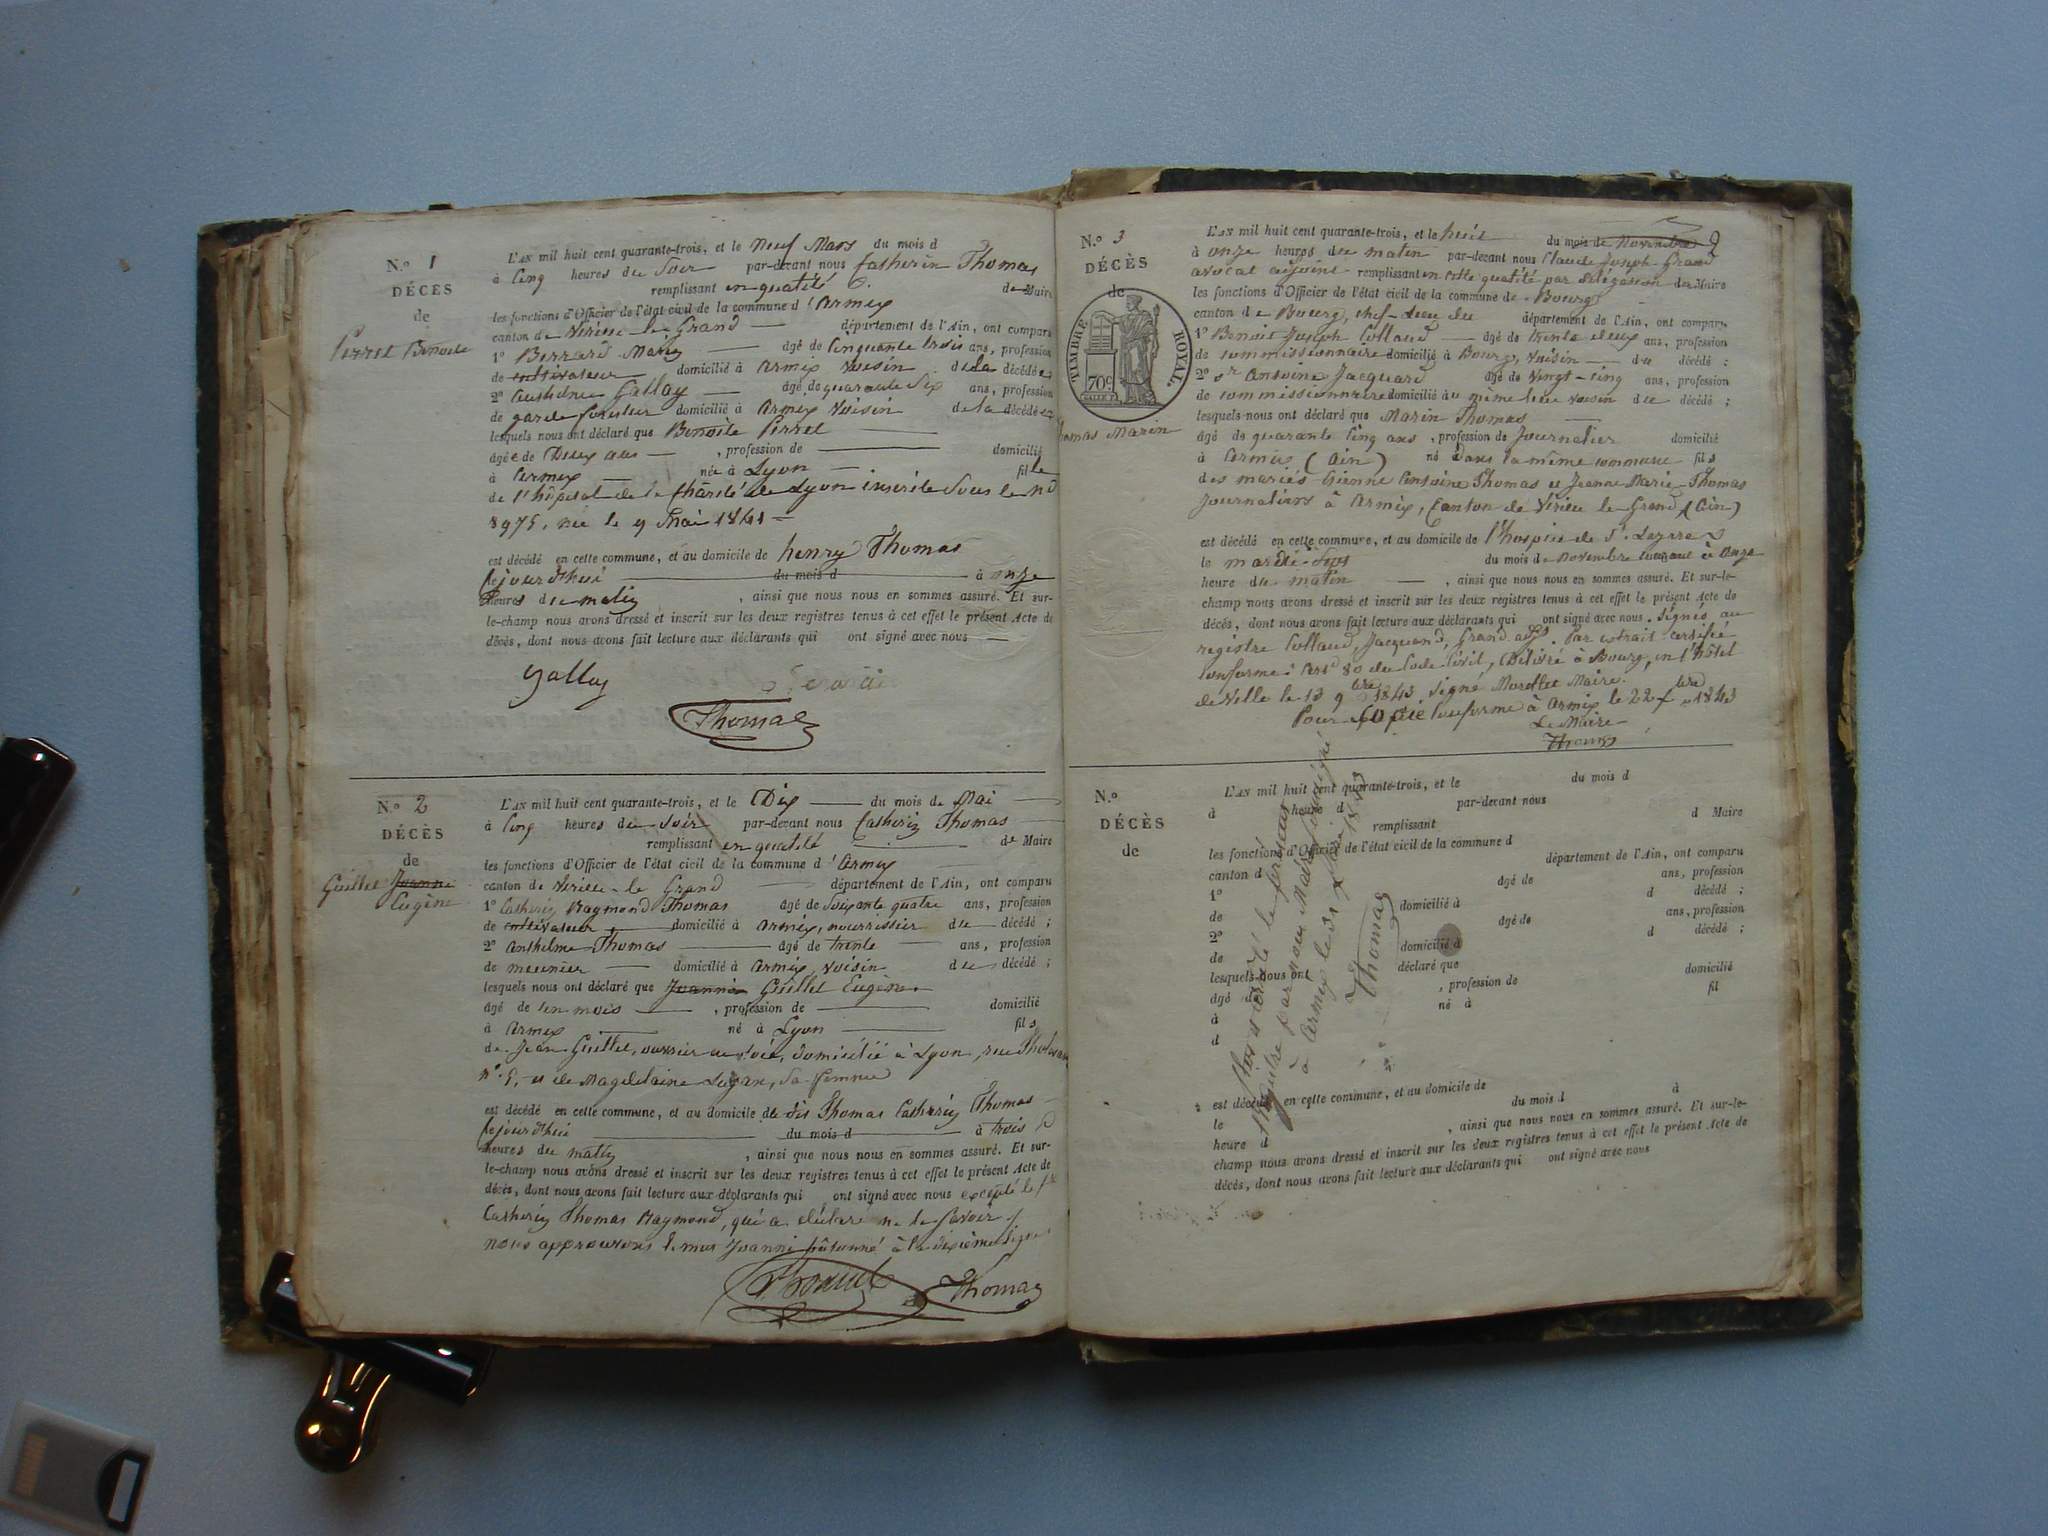 N.º 1
DÉCÈS
de
Perret Benoite
L'AN mil huit cent quarante-trois, et le neuf Mars du mois d
à Cinq heures du Soir par-devant nous Catherin Thomas
remplissant en qualité de Maire
les fonctions d'Officier de l'état civil de la commune d'Armix
canton de Virieu le Grand département de l'Ain, ont comparu
1º Berrard Marin âgé de Cinquante trois ans, profession
de cultivateur domicilié à Armix voisin de la décédée
2º Anthelme Gallay âgé de quarante Six ans, profession
de garde forestier domicilié à Armix Voisin de la décédée
lesquels nous ont déclaré que Benoite Perret
âgée de Deux ans , profession de domicilié
à Armix née à Lyon fille
de l'hôpital de la Charité de Lyon inscrite Sous le nº
8975, née le 9 Mai 1841
est décédé en cette commune, et au domicile de henry Thomas
lejourd'hui du mois d à onze
heures du matin , ainsi que nous nous en sommes assuré. Et sur-
le-champ nous avons dressé et inscrit sur les deux registres tenus à cet effet le présent Acte de
décès, dont nous avons fait lecture aux déclarants qui ont signé avec nous
Gallay
Thomas
N.º 2
DÉCÈS
de
Guillet Joanni
Eugène
L'AN mil huit cent quarante-trois, et le Dix du mois de Mai
à Cinq heures du Soir par-devant nous Catherin Thomas
remplissant en qualité de Maire
les fonctions d'Officier de l'état civil de la commune d'Armix
canton de Virieu-le Grand département de l'Ain, ont comparu
1º Catherin Raymond Thomas âgé de Soixante quatre ans, profession
de cultivateur domicilié à Armix, nourrissier du décédé ;
2º Anthelme Thomas âgé de trente ans, profession
de meunier domicilié à Armix, voisin du décédé ;
lesquels nous ont déclaré que Joanni Guillet Eugène
âgé de Un mois , profession de domicilié
à Armix né à Lyon fils
de Jean Guillet, ouvrier en Soie, domicilié à Lyon, rue
nº 5, et de Magdelaine Sa femme
est décédé en cette commune, et au domicile de dis Thomas Catherin Thomas
lejourd'hui du mois d à trois
heures du matin , ainsi que nous nous en sommes assuré. Et sur-
le-champ nous avons dressé et inscrit sur les deux registres tenus à cet effet le présent Acte de
décès, dont nous avons fait lecture aux déclarants qui ont signé avec nous excepté le
Catherin Thomas Raymond, qui a déclaré ne le Savoir
nous approuvons le mot Joanni bâtonné à la dixième ligne
Thomas
N.º 3
DÉCÈS
de
TIMBRE ROYAL
70c
Thomas Marin
L'AN mil huit cent quarante-trois, et le huit du mois de Novembre
à onze heures du matin par-devant nous Claude Joseph Grand
avocat adjoint remplissant en cette qualité par délégation du Maire
les fonctions d'Officier de l'état civil de la commune de Bourg
canton de Bourg, chef-lieu du département de l'Ain, ont comparu
1º Benoit Joseph Collaud âgé de trente deux ans, profession
de commissionnaire domicilié à Bourg, voisin du décédé ;
2º Sr Antoine Jacquand âgé de vingt-cinq ans, profession
de commissionnaire domicilié au même lieu voisin du décédé ;
lesquels nous ont déclaré que Marin Thomas
âgé de quarante Cinq ans , profession de Journalier domicilié
à Armix (Ain) né dans la même commune fils
des mariés Etienne Antoine Thomas et Jeanne Marie Thomas
Journaliers à Armix, Canton de Virieu le Grand (Ain)
est décédé en cette commune, et au domicile de l'hospice de St. Lazare
le mardi Sept du mois de novembre courant à Onze
heure du matin , ainsi que nous nous en sommes assuré. Et sur-le-
champ nous avons dressé et inscrit sur les deux registres tenus à cet effet le présent Acte de
décès, dont nous avons fait lecture aux déclarants qui ont signé avec nous. Signés au
registre Collaud, Jacquand, Grand adjt. Par extrait certifié
conforme: Art 80 du Code Civil, Délivré à Bourg, en l'hôtel
de Ville le 13 9bre 1843 Signé Morellet Maire.
Pour copie conforme à Armix le 22 1843
Le Maire
Thomas
N.º
DÉCÈS
de
L'AN mil huit cent quarante-trois, et le du mois d
à heure d par-devant nous
remplissant d Maire
les fonctions d'Officier de l'état civil de la commune d
canton d département de l'Ain, ont comparu
1º âgé de ans, profession
de domicilié à d décédé ;
2º âgé de ans, profession
de domicilié à d décédé ;
lesquels nous ont déclaré que
âgé de , profession de domicilié
à né à fil
d
est décédé en cette commune, et au domicile de
le du mois d à
heure d , ainsi que nous nous en sommes assuré. Et sur-le-
champ nous avons dressé et inscrit sur les deux registres tenus à cet effet le présent Acte de
décès, dont nous avons fait lecture aux déclarants qui ont signé avec nous
Clos et arrêté le présent
registre par nous Maire soussigné
à Armix le 31 1843
Thomas